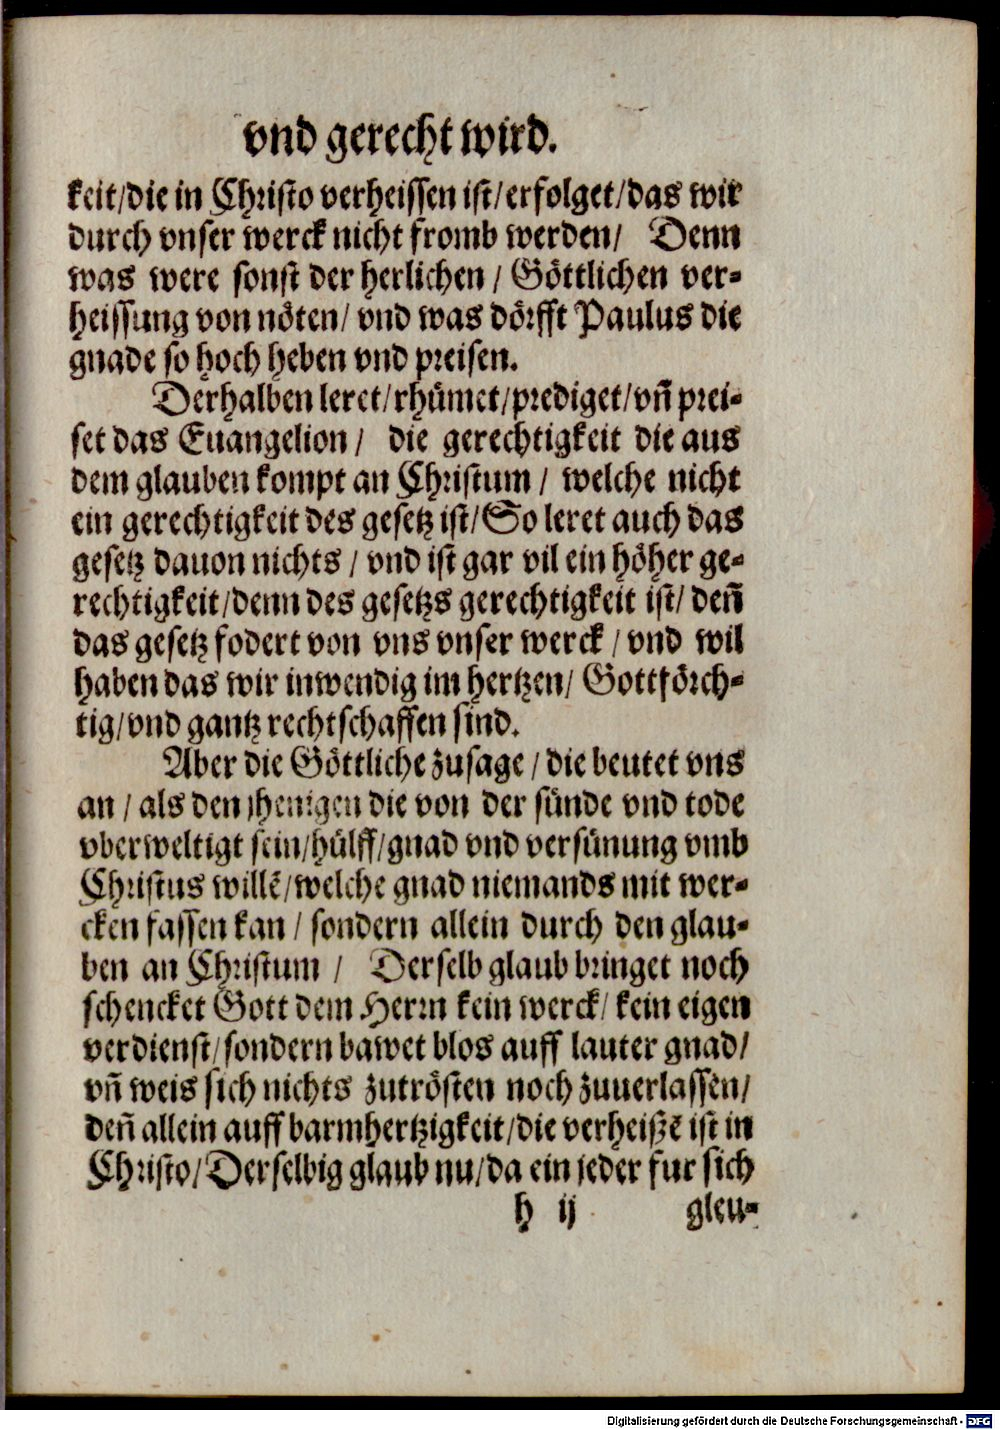 vnd gerecht wird.
keit/die in Christo verheissen ist/erfolget/das wir
durch vnser werck nicht fromb werden/ Denn
was were sonst der herlichen / Göttlichen ver-
heissung von nöten/ vnd was dörfft Paulus die
gnade so hoch heben vnd preisen.
Derhalben leret/rhümet/prediget/vñ prei-
set das Euangelion / die gerechtigkeit die aus
dem glauben kompt an Christum / welche nicht
ein gerechtigkeit des gesetz ist/So leret auch das
gesetz dauon nichts / vnd ist gar vil ein höher ge-
rechtigkeit/denn des gesetzs gerechtigkeit ist/ deñ
das gesetz fodert von vns vnser werck / vnd wil
haben das wir inwendig im hertzen/ Gottförch-
tig/vnd gantz rechtschaffen sind.
Aber die Göttliche zusage / die beutet vns
an / als den jhenigen die von der sünde vnd tode
vberweltigt sein/hülff/gnad vnd versünung vmb
Christus willẽ/welche gnad niemands mit wer-
cken fassen kan / sondern allein durch den glau-
ben an Christum / Derselb glaub bringet noch
schencket Gott dem Herrn kein werck/ kein eigen
verdienst/sondern bawet blos auff lauter gnad/
vñ weis sich nichts zutrösten noch zuuerlassẽn/
deñ allein auff barmhertzigkeit/die verheißẽ ist in
Christo/Derselbig glaub nu/da ein jeder fur sich
h ij gleu-
Digitalisierung gefördert durch die Deutsche Forschungsgemeinschaft - DFG